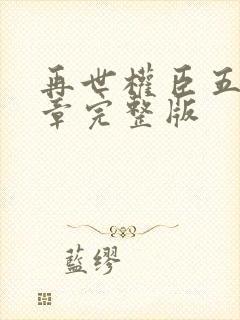 再世權臣五
章完整版
藍繆